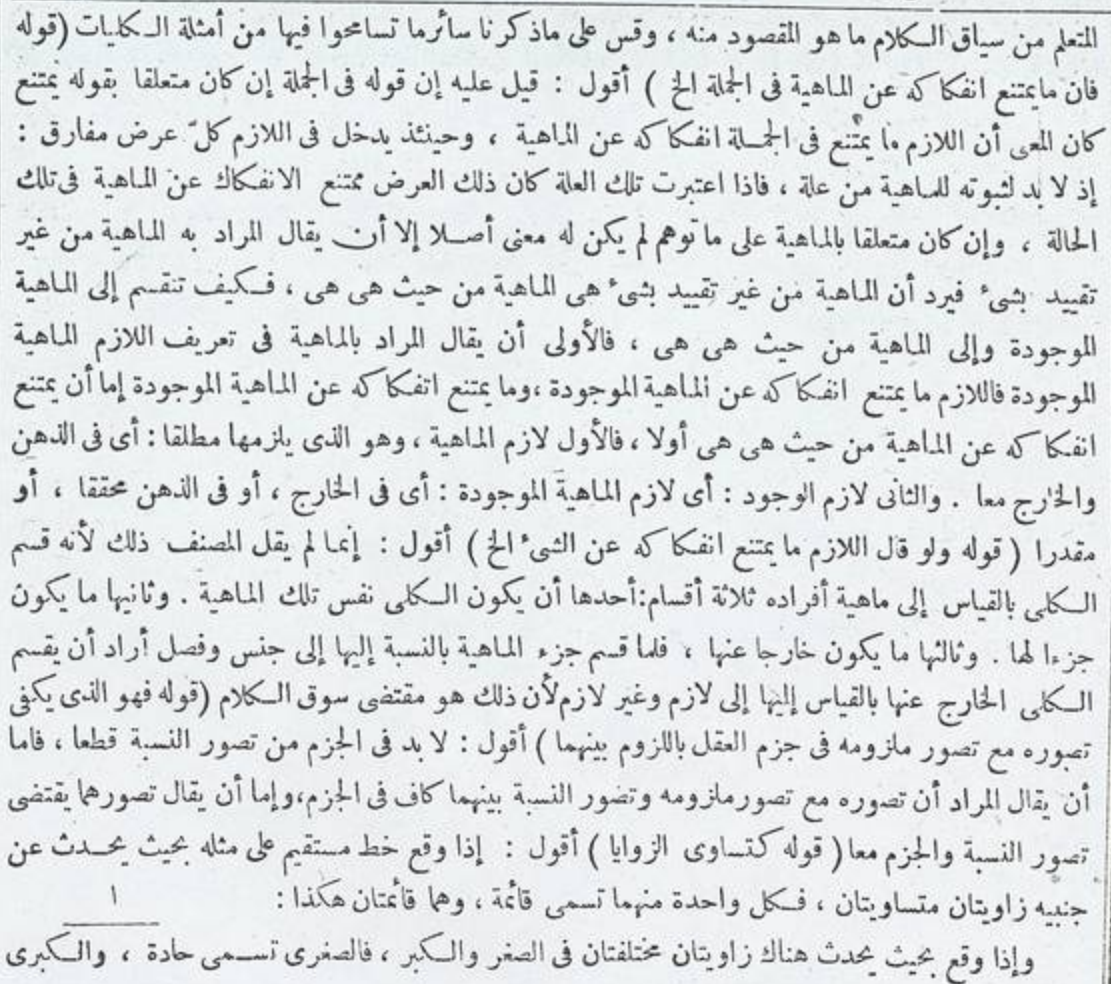 المتعلم من سياق الكلام ما هو المقصود منه ، وقس على ماذكرنا سائرما تسامحوا فيها من أمثلة الكليات (قوله
فان مايمتنع انفكاكه عن الماهية فى الجملة الخ ) أقول : قيل عليه إن قوله فى الجملة إن كان متعلقا بقوله يمتنع
كان المعى أن اللازم ما يمتنع فى الجملة انفكاكه عن الماهية ، وحينئذ يدخل فى اللازم كلّ عرض مفارق :
إذ لا بد لثبوته للماهية من علة ، فاذا اعتبرت تلك العلة كان ذلك العرض ممتنع الانفكاك عن الماهية فى تلك
الحالة ، وإن كان متعلقا بالماهية على ما توهم لم يكن له معنى أصلا إلا أن يقال المراد به الماهية من غير
تقييد بشىء فيرد أن الماهية من غير تقييد بشىء هى الماهية من حيث هى هى ، فكيف تنقسم إلى الماهية
الموجودة وإلى الماهية من حيث هى هى ، فالأولى أن يقال المراد بالماهية فى تعريف اللازم الماهية
الموجودة فاللازم ما يمتنع انفكاكه عن الماهية الموجودة ،وما يمتنع اتفكاكه عن الماهية الموجودة إما أن يمتنع
انفكاكه عن الماهية من حيث هى هى أولا ، فالأول لازم الماهية ، وهو الذى يلزمها مطلقا : أى فى الذهن
والخارج معا . والثانى لازم الوجود : أى لازم الماهية الموجودة : أى فى الخارج ، أو فى الذهن محققا ، أو
مقدرا ( قوله ولو قال اللازم ما يمتنع انفكاكه عن الشىء الخ ) أقول : إنما لم يقل المصنف ذلك لأنه قسم
الكلى بالقياس إلى ماهية أفراده ثلاثة أقسام:أحدها أن يكون الكلى نفس تلك الماهية . وثانيها ما يكون
جزءا لها . وثالثها ما يكون خارجا عنها ، فلما قسم جزء الماهية بالنسبة إليها إلى جنس وفصل أراد أن يقسم
الكلى الخارج عنها بالقياس إليها إلى لازم وغير لازم لأن ذلك هو مقتضى سوق الكلام (قوله فهو الذى يكفى
تصوره مع تصور ملزومه فى جزم العقل باللزوم بينهما ) أقول : لا بد فى الجزم من تصور النسبة قطعا ، فاما
أن يقال المراد أن تصوره مع تصورملزومه وتصور النسبة بينهما كاف فى الجزم،وإما أن يقال تصورهما يقتضى
تصور النسبة والجزم معا ( قوله كتساوى الزوايا ) أقول : إذا وقع خط مستقيم على مثله بحيث يحدث عن
جنبيه زاويتان متساويتان ، فكل واحدة منهما تسمى قائمة ، وهما قائمتان هكذا :
وإذا وقع بحيث يحدث هناك زاويتان مختلفتان فى الصغر والكبر ، فالصغرى تسمى حادة ، والكبرى